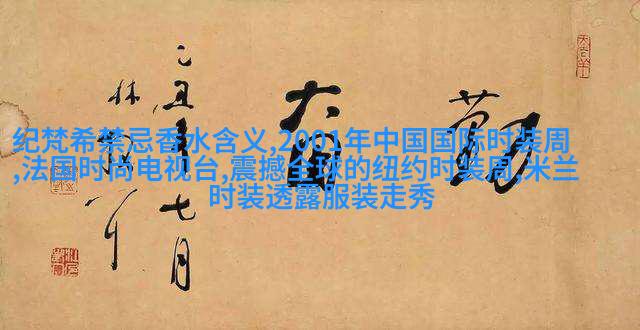 纪梵希禁忌香水含义,2001年中国国际时装周
,法国时尚电视台,震撼全球的纽约时装周,米兰
时装透露服装走秀
勤奮
乙丑年七月
林散耳